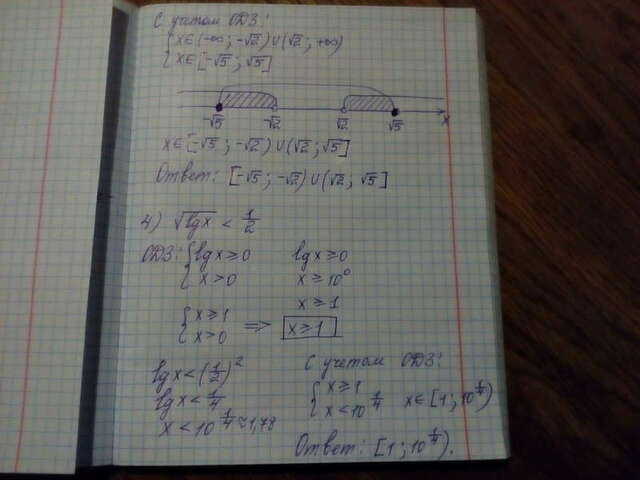 С учетом ОДЗ:
{ x∈(-∞; -√2)∪(√2; +∞)
{ x∈[-√5; √5]
-√5 -√2 √2 √5 x
x∈[-√5; -√2)∪(√2; √5]
Ответ: [-√5; -√2)∪(√2; √5]
4) √lgx < 1/2
ОДЗ: { lgx ≥ 0
{ x > 0
lgx ≥ 0
x ≥ 10⁰
x ≥ 1
{ x ≥ 1
{ x > 0 => x ≥ 1
lgx < (1/2)²
lgx < 1/4
x < 10^(1/4) ≈ 1,78
С учетом ОДЗ:
{ x ≥ 1
{ x < 10^(1/4) x∈[1; 10^(1/4))
Ответ: [1; 10^(1/4)).